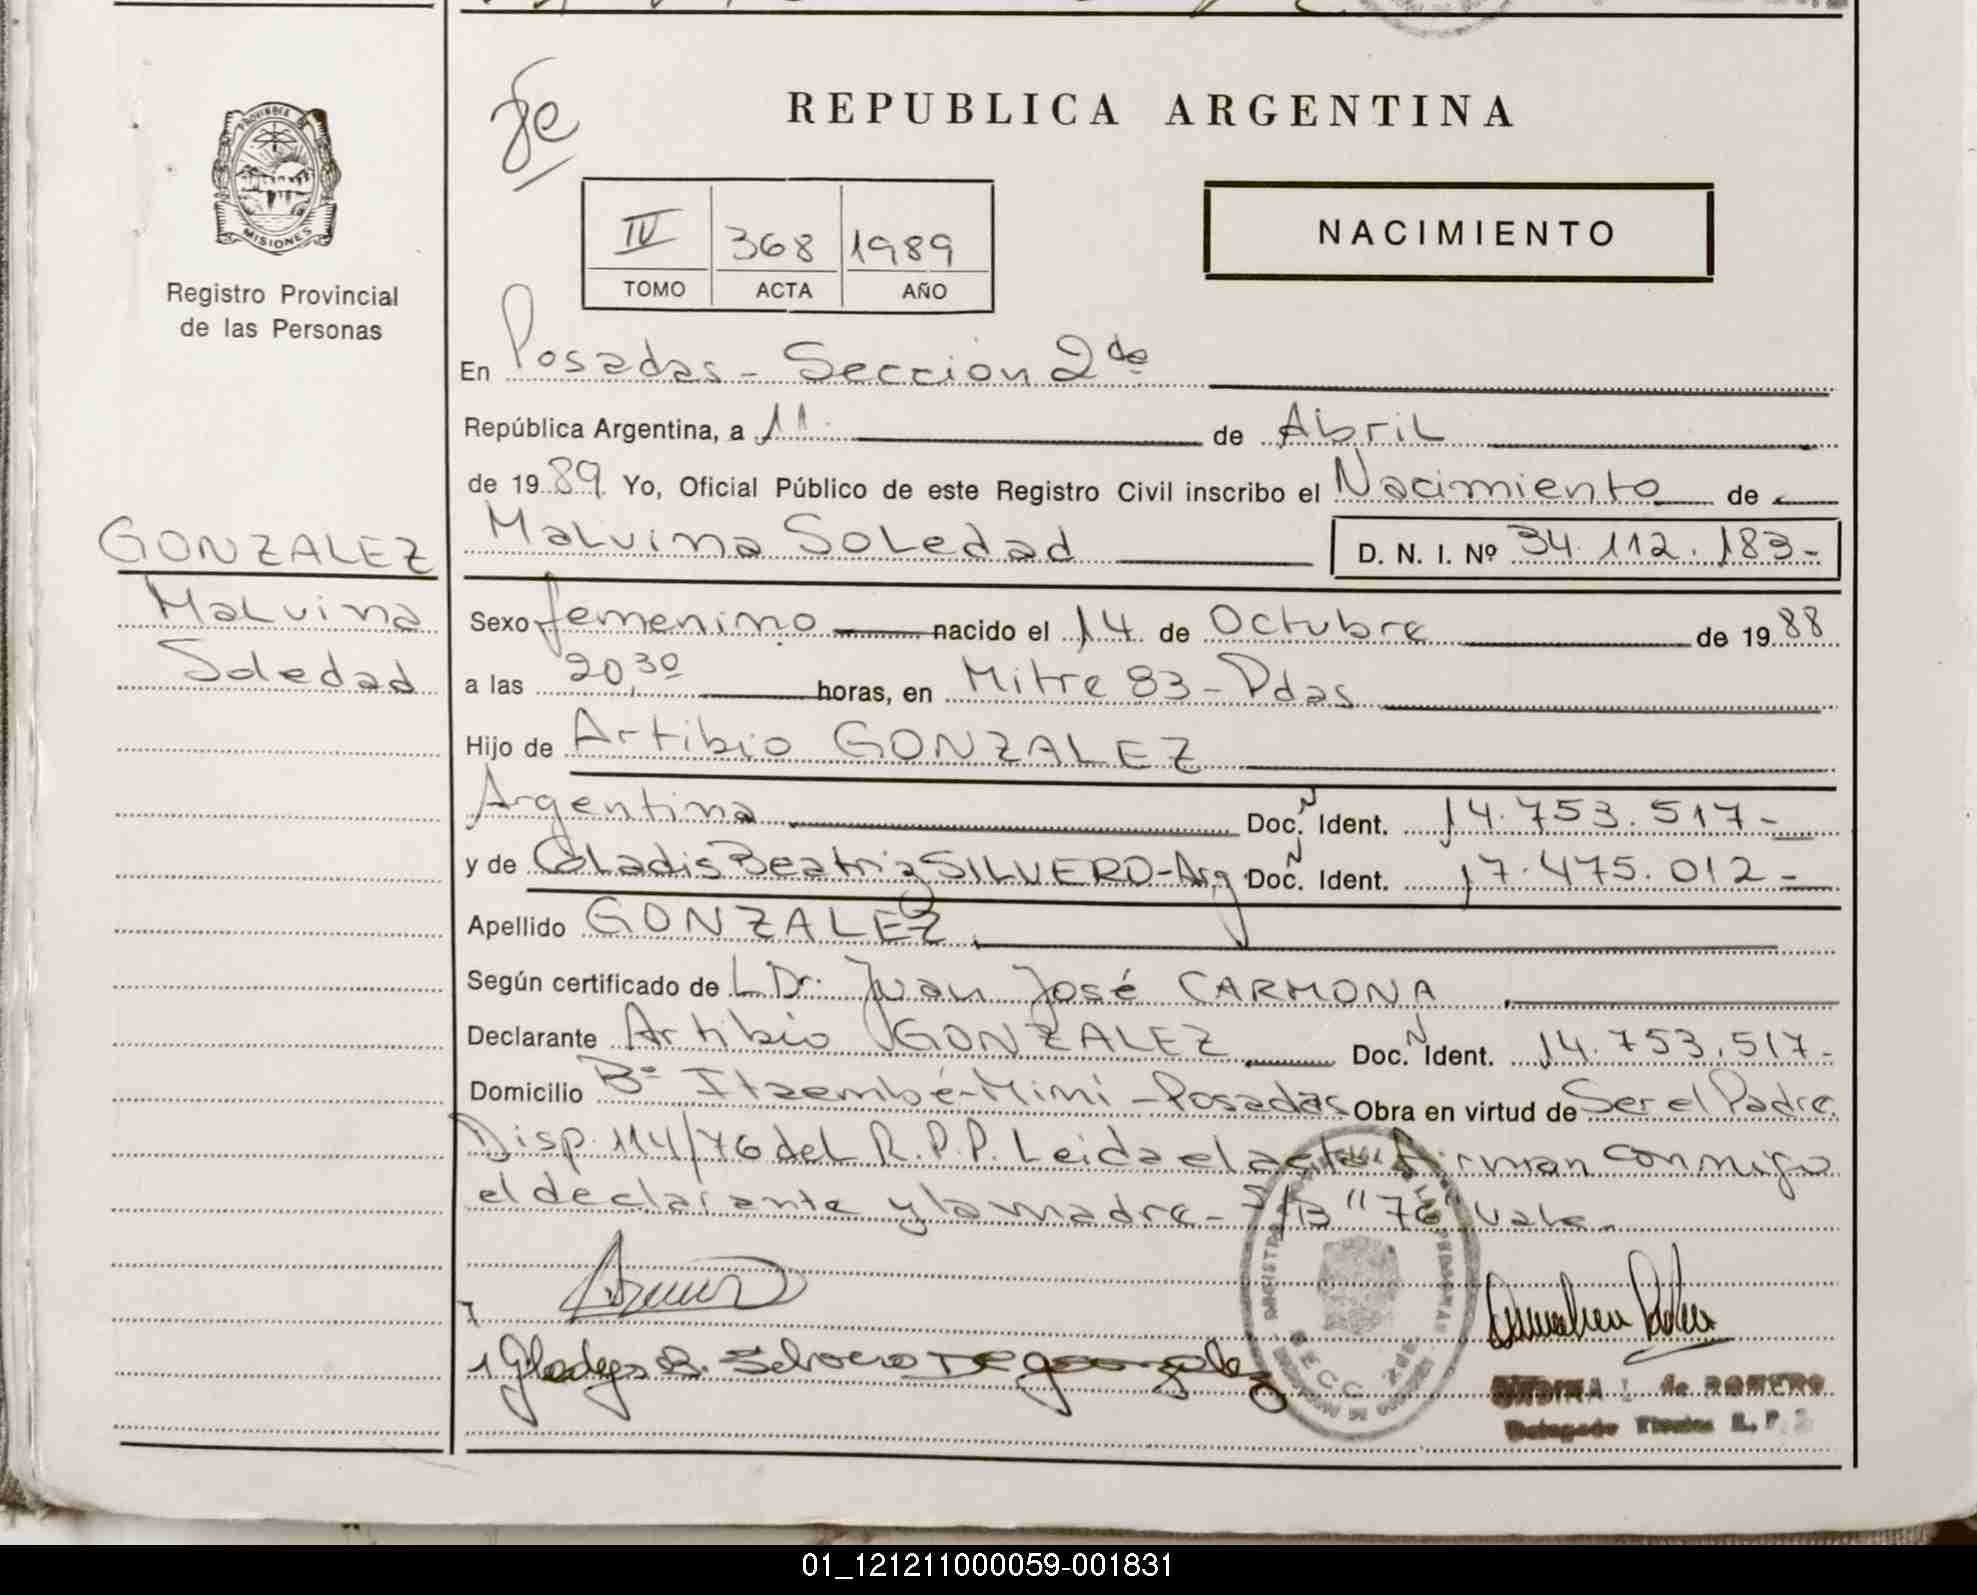 REPUBLICA ARGENTINA
PROVINCIA DE
MISIONES
Registro Provincial
de las Personas
IV 368 1989
TOMO ACTA AÑO
NACIMIENTO
En Posadas - Sección 2da
República Argentina, a 11 de Abril
de 1989 Yo, Oficial Público de este Registro Civil inscribo el Nacimiento de
GONZALEZ
Malvina
Soledad
Malvina Soledad D. N. I. Nº 34.112.183-
Sexo femenino nacido el 14 de Octubre de 1988
a las 20,30 horas, en Mitre 83 - Pdas
Hijo de Artibio GONZALEZ
Argentina Doc. N Ident. 14.753.517-
y de Gladis Beatriz SILVERO - Arg Doc. N Ident. 17.475.012-
Apellido GONZALEZ
Según certificado de L Dr. Juan José CARMONA
Declarante Artibio GONZALEZ Doc. N Ident. 14.753.517-
Domicilio Bº Itaembé-Miní - Posadas Obra en virtud de Ser el Padre.
Disp. 114/76 del R.P.P. Leida el acta firman conmigo
el declarante y la madre - S/B "76" Vale.
Gladys B. Silvero De gonzalez
SECC 2da
de ROMERO
01_121211000059-001831